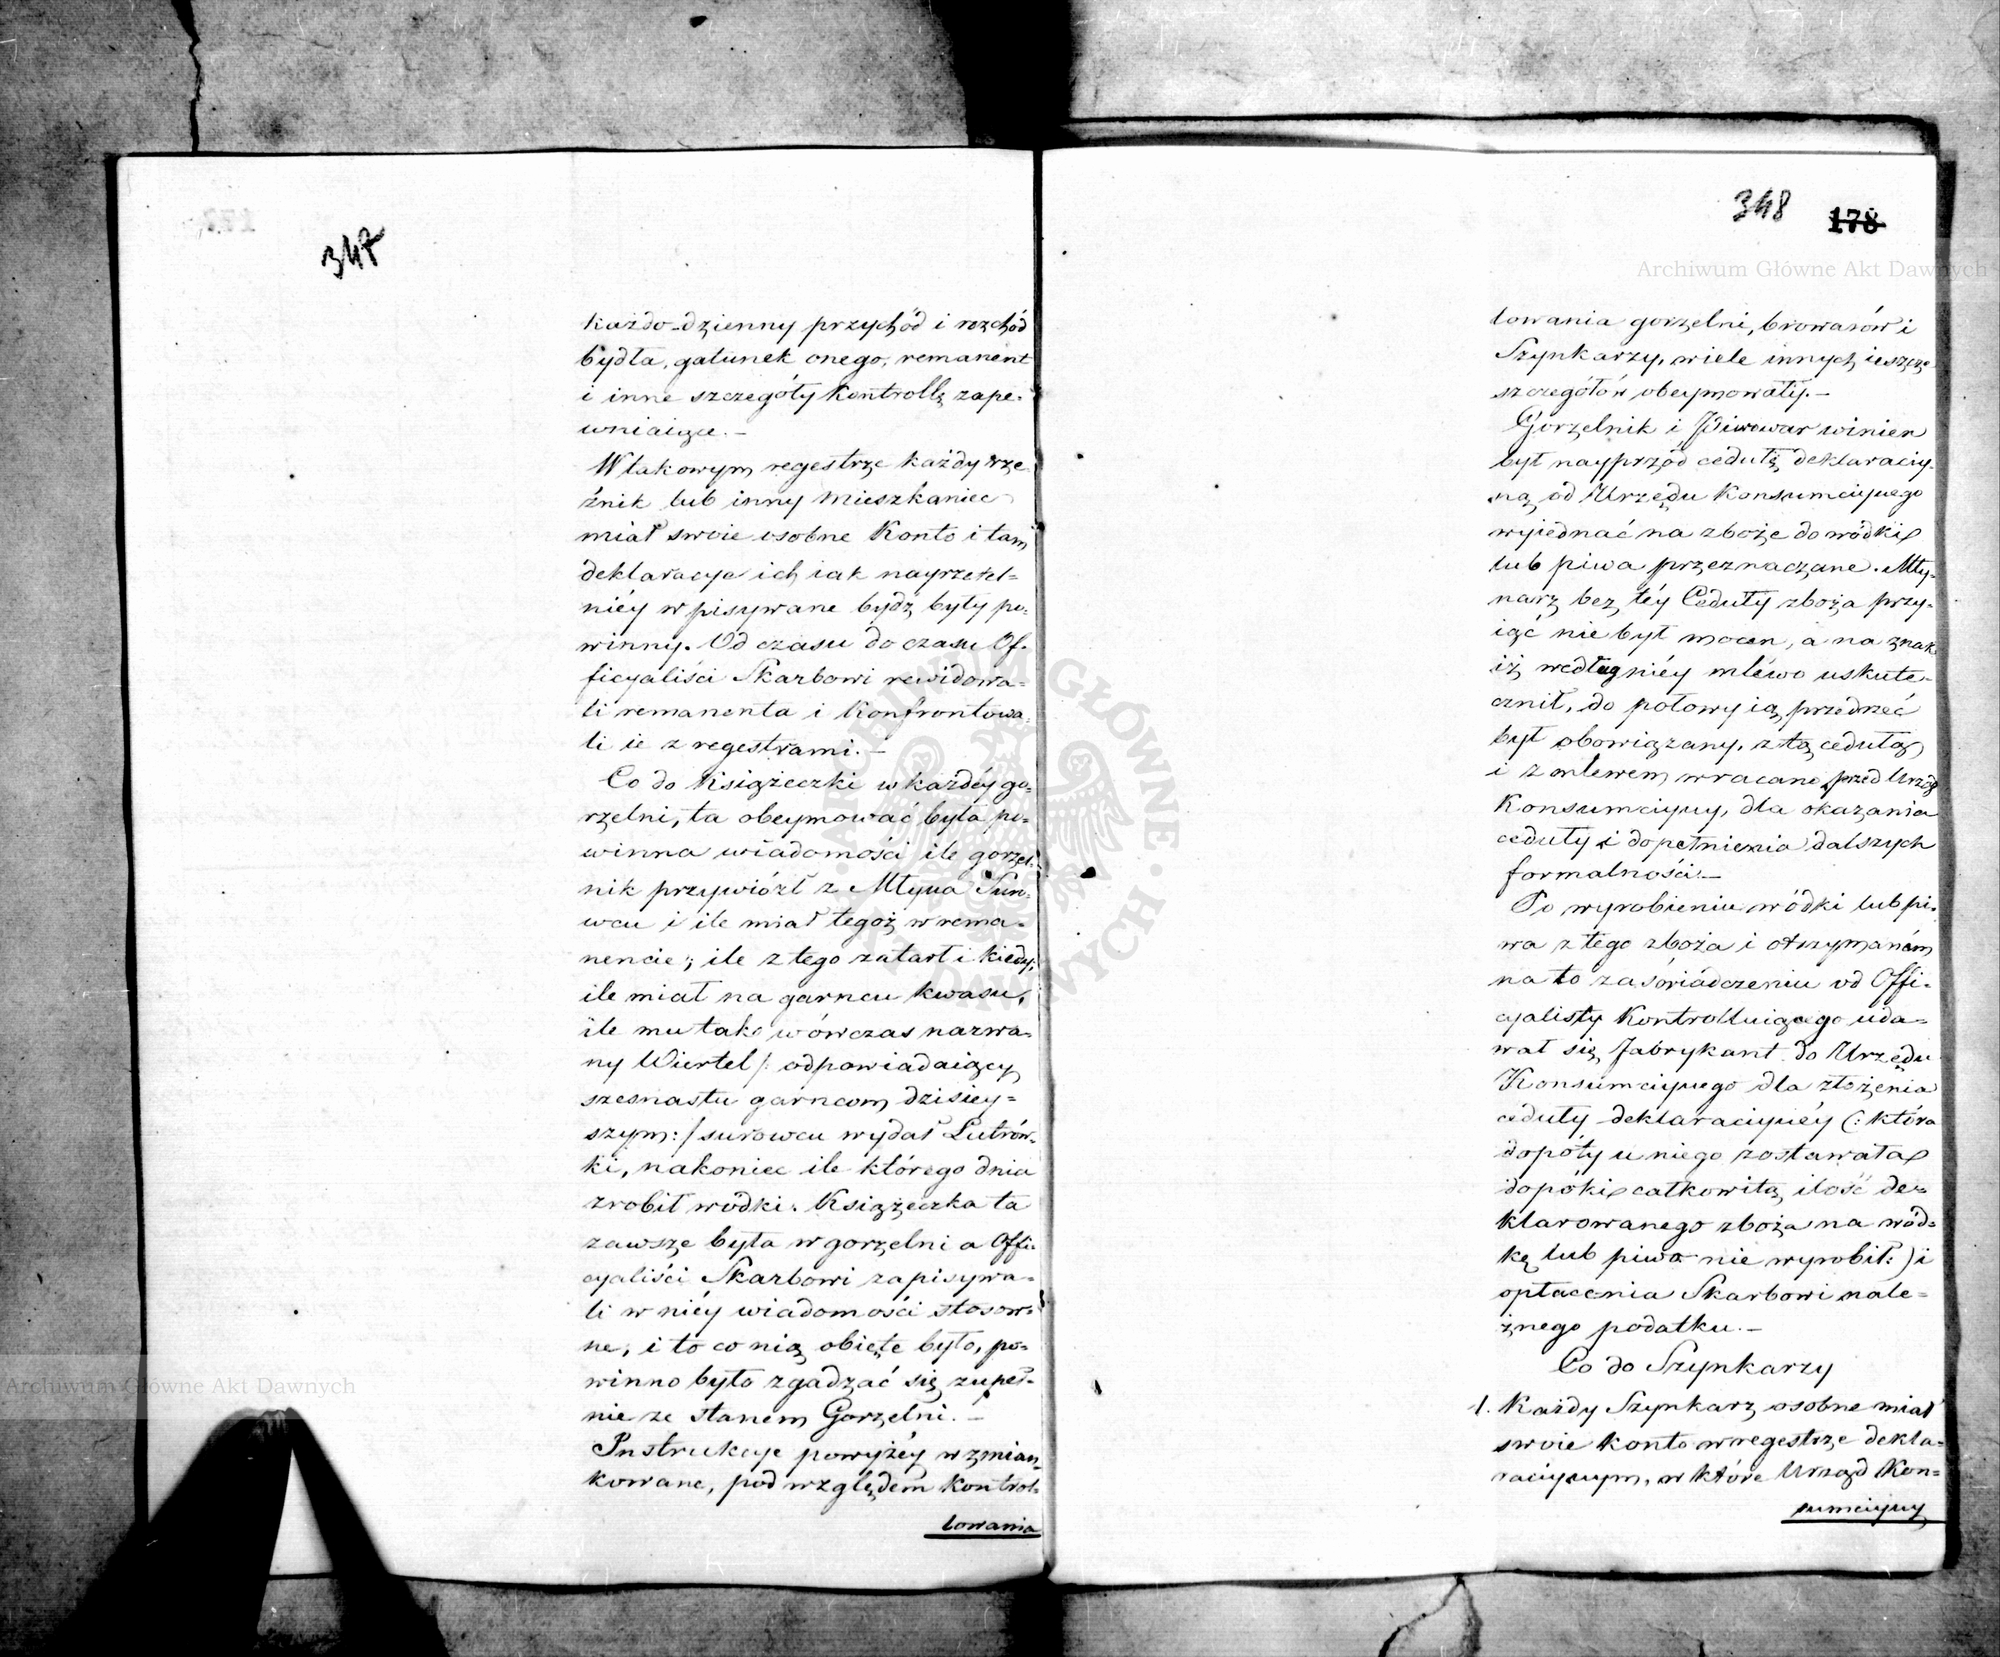 347
każdo-dzienny przychód i rozchód
bydła, gatunek onego, remanent
i inne szczegóły kontrollę zape-
wniaiące.-
W takowym regestrze każdy rze-
źnik lub inny mieszkaniec
miał swoie osobne Konto i tam
deklaracye ich iak nayrzetel=
niéy wpisywane bydź były po-
winny. Od czasu do czasu Of-
ficyaliści Skarbowi rewidowa=
li remanenta i konfrontowa-
li ie z regestrami.-
Co do Książeczki w każdéy go-
rzelni, ta obeymować była po-
winna wiadomości ile gorzel-
nik przywiózł z Młyna Suro-
wcu i ile miał tegoż w rema-
nencie; ile z tego zatarł i kiedy;
ile miał na garncu kwasu,
ile mu tak wówczas nazwa-
ny Wiertel /: odpowiadaiący
szesnastu garncom dzisiey=
szym:/ surowcu wydał Lutrów-
ki, nakoniec ile którego dnia
zrobił wódki. Książeczka ta
zawsze była w gorzelni a Offi-
cyaliści Skarbowi zapisywa-
li w niéy wiadomości stosow-
ne, i to co nią obięte było, po-
winno było zgadzać się zupeł-
nie ze stanem Gorzelni.-
Instrukcye powyżéy wzmian-
kowane, pod względem kontrol-
lowania
348 178
lowania gorzelni, browarów i
Szynkarzy, wiele innych ieszcze
szczegółów obeymowały.-
Gorzelnik i Piwowar winien
był nayprzód cedułę deklaracyi-
ną od Urzędu Konsumcyinego
wyiednać na zboże do wódki
lub piwa przeznaczane. Mły-
narz bez téy Ceduły zboża przy-
iąć nie był mocen, a na znak
iż według niéy mléwo uskute-
cznił, do połowy ią przedrzéć
był obowiązany, z tą cedułą
i z mlewem wracano przed Urząd
Konsumcyiny, dla okazania
ceduły i dopełnienia dalszych
formalności.-
Po wyrobieniu wódki lub pi-
wa z tego zboża i otrzymaném
na to zaświadczeniu od Offi-
cyalisty Kontrolluiącego uda-
wał się Fabrykant do Urzędu
Konsumcyinego dla złożenia
ceduły deklaracyinéy (: która
dopóty u niego zostawała
dopóki całkowitą ilość de-
klarowanego zboża na wód-
kę lub piwo nie wyrobił:) i
opłacenia Skarbowi nale-
żnego podatku.-
Co do Szynkarzy
1. Każdy Szynkarz osobne miał
swoie konto w regestrze dekla-
racyinym, w które Urząd Kon-
sumcyiny
Archiwum Główne Akt Dawnych
Archiwum Główne Akt Dawnych
ARCHIWUM GŁÓWNE AKT DAWNYCH